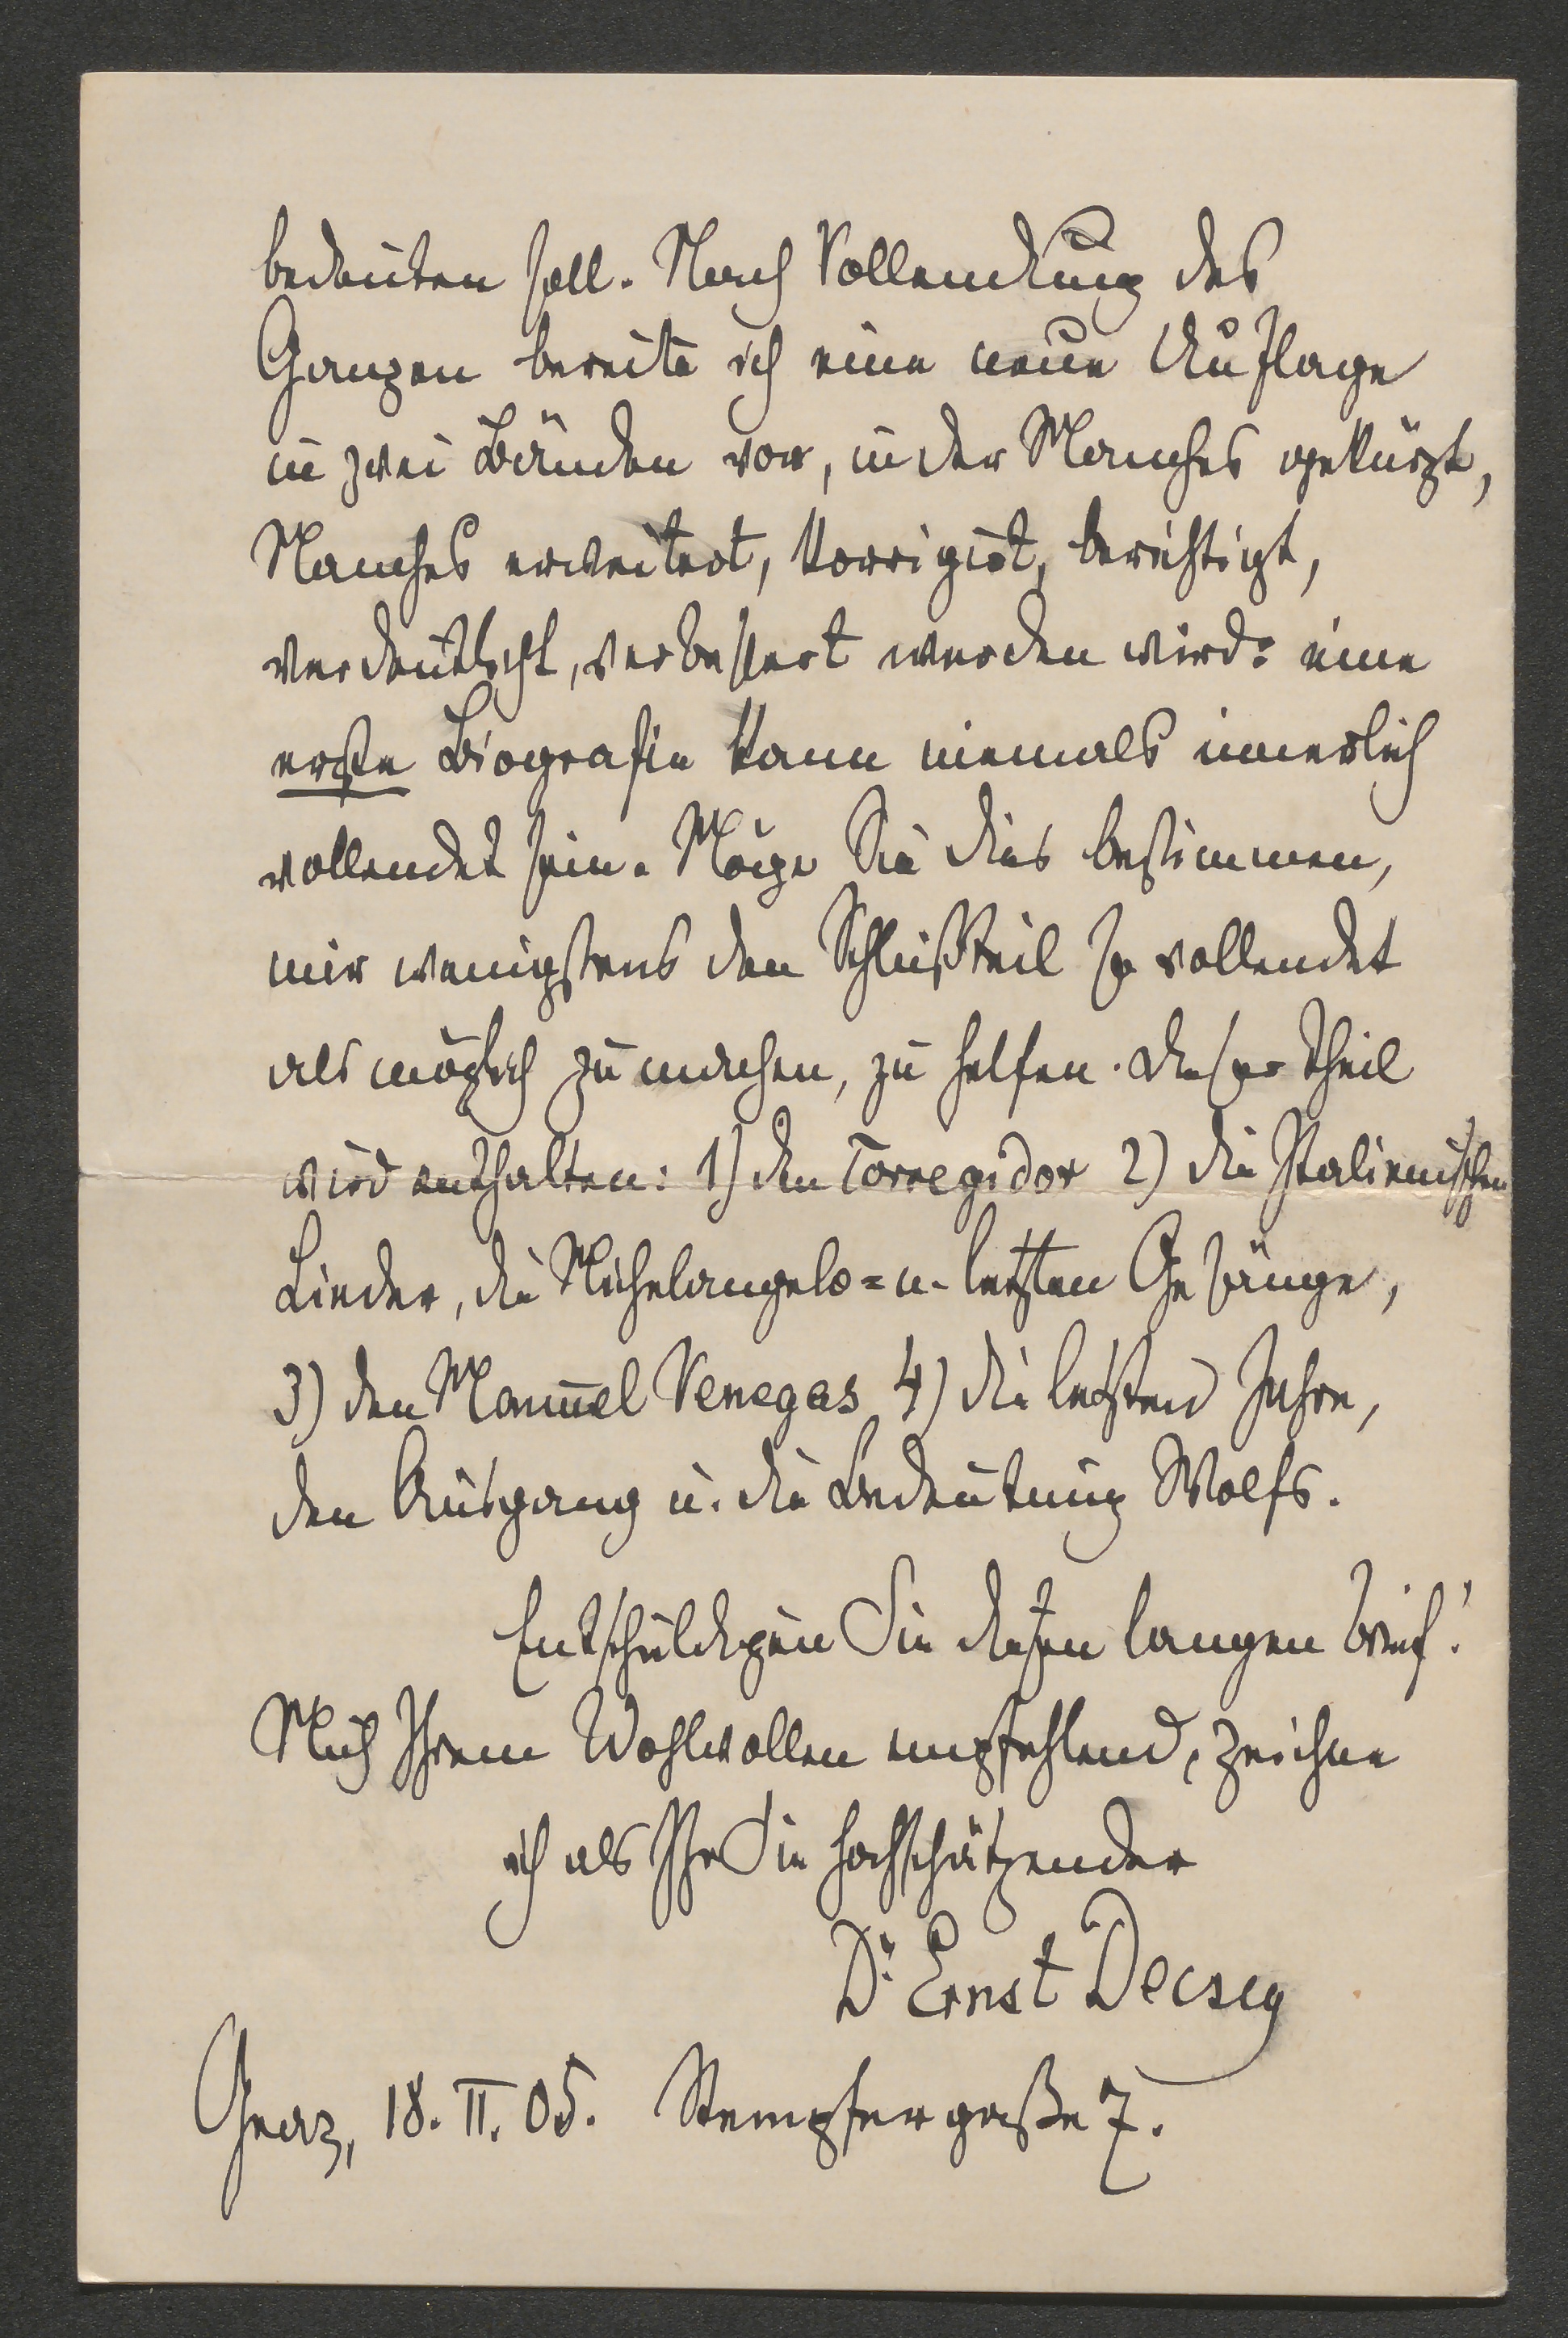 bedeuten soll. Nach Vollendung des
Ganzen bereite ich eine neue Auflage
in zwei Bänden vor, in der Manches gekürzt,
Manches erweitert, korrigirt, berichtigt,
verdeutlicht, verbessert werden wird: eine
erste Biografie kann niemals innerlich
vollendet sein. Möge Sie dies bestimmen,
mir wenigstens den Schlußteil so vollendet
als möglich zu machen, zu helfen. Dieser Theil
wird enthalten: 1) den Corregidor 2) die Italienischen
Lieder, die Michelangelo- u. letzten Gesänge,
3) den Manuel Venegas 4) die letzten Jahre,
den Ausgang u. die Bedeutung Wolfs.
Entschuldigen Sie diesen langen Brief!
Mich Ihrem Wohlwollen empfehlend, zeichne
ich als Ihr Sie hochschätzender
Dr Ernst Decsey
Graz, 18. II. 05. Stempfergaße 7.